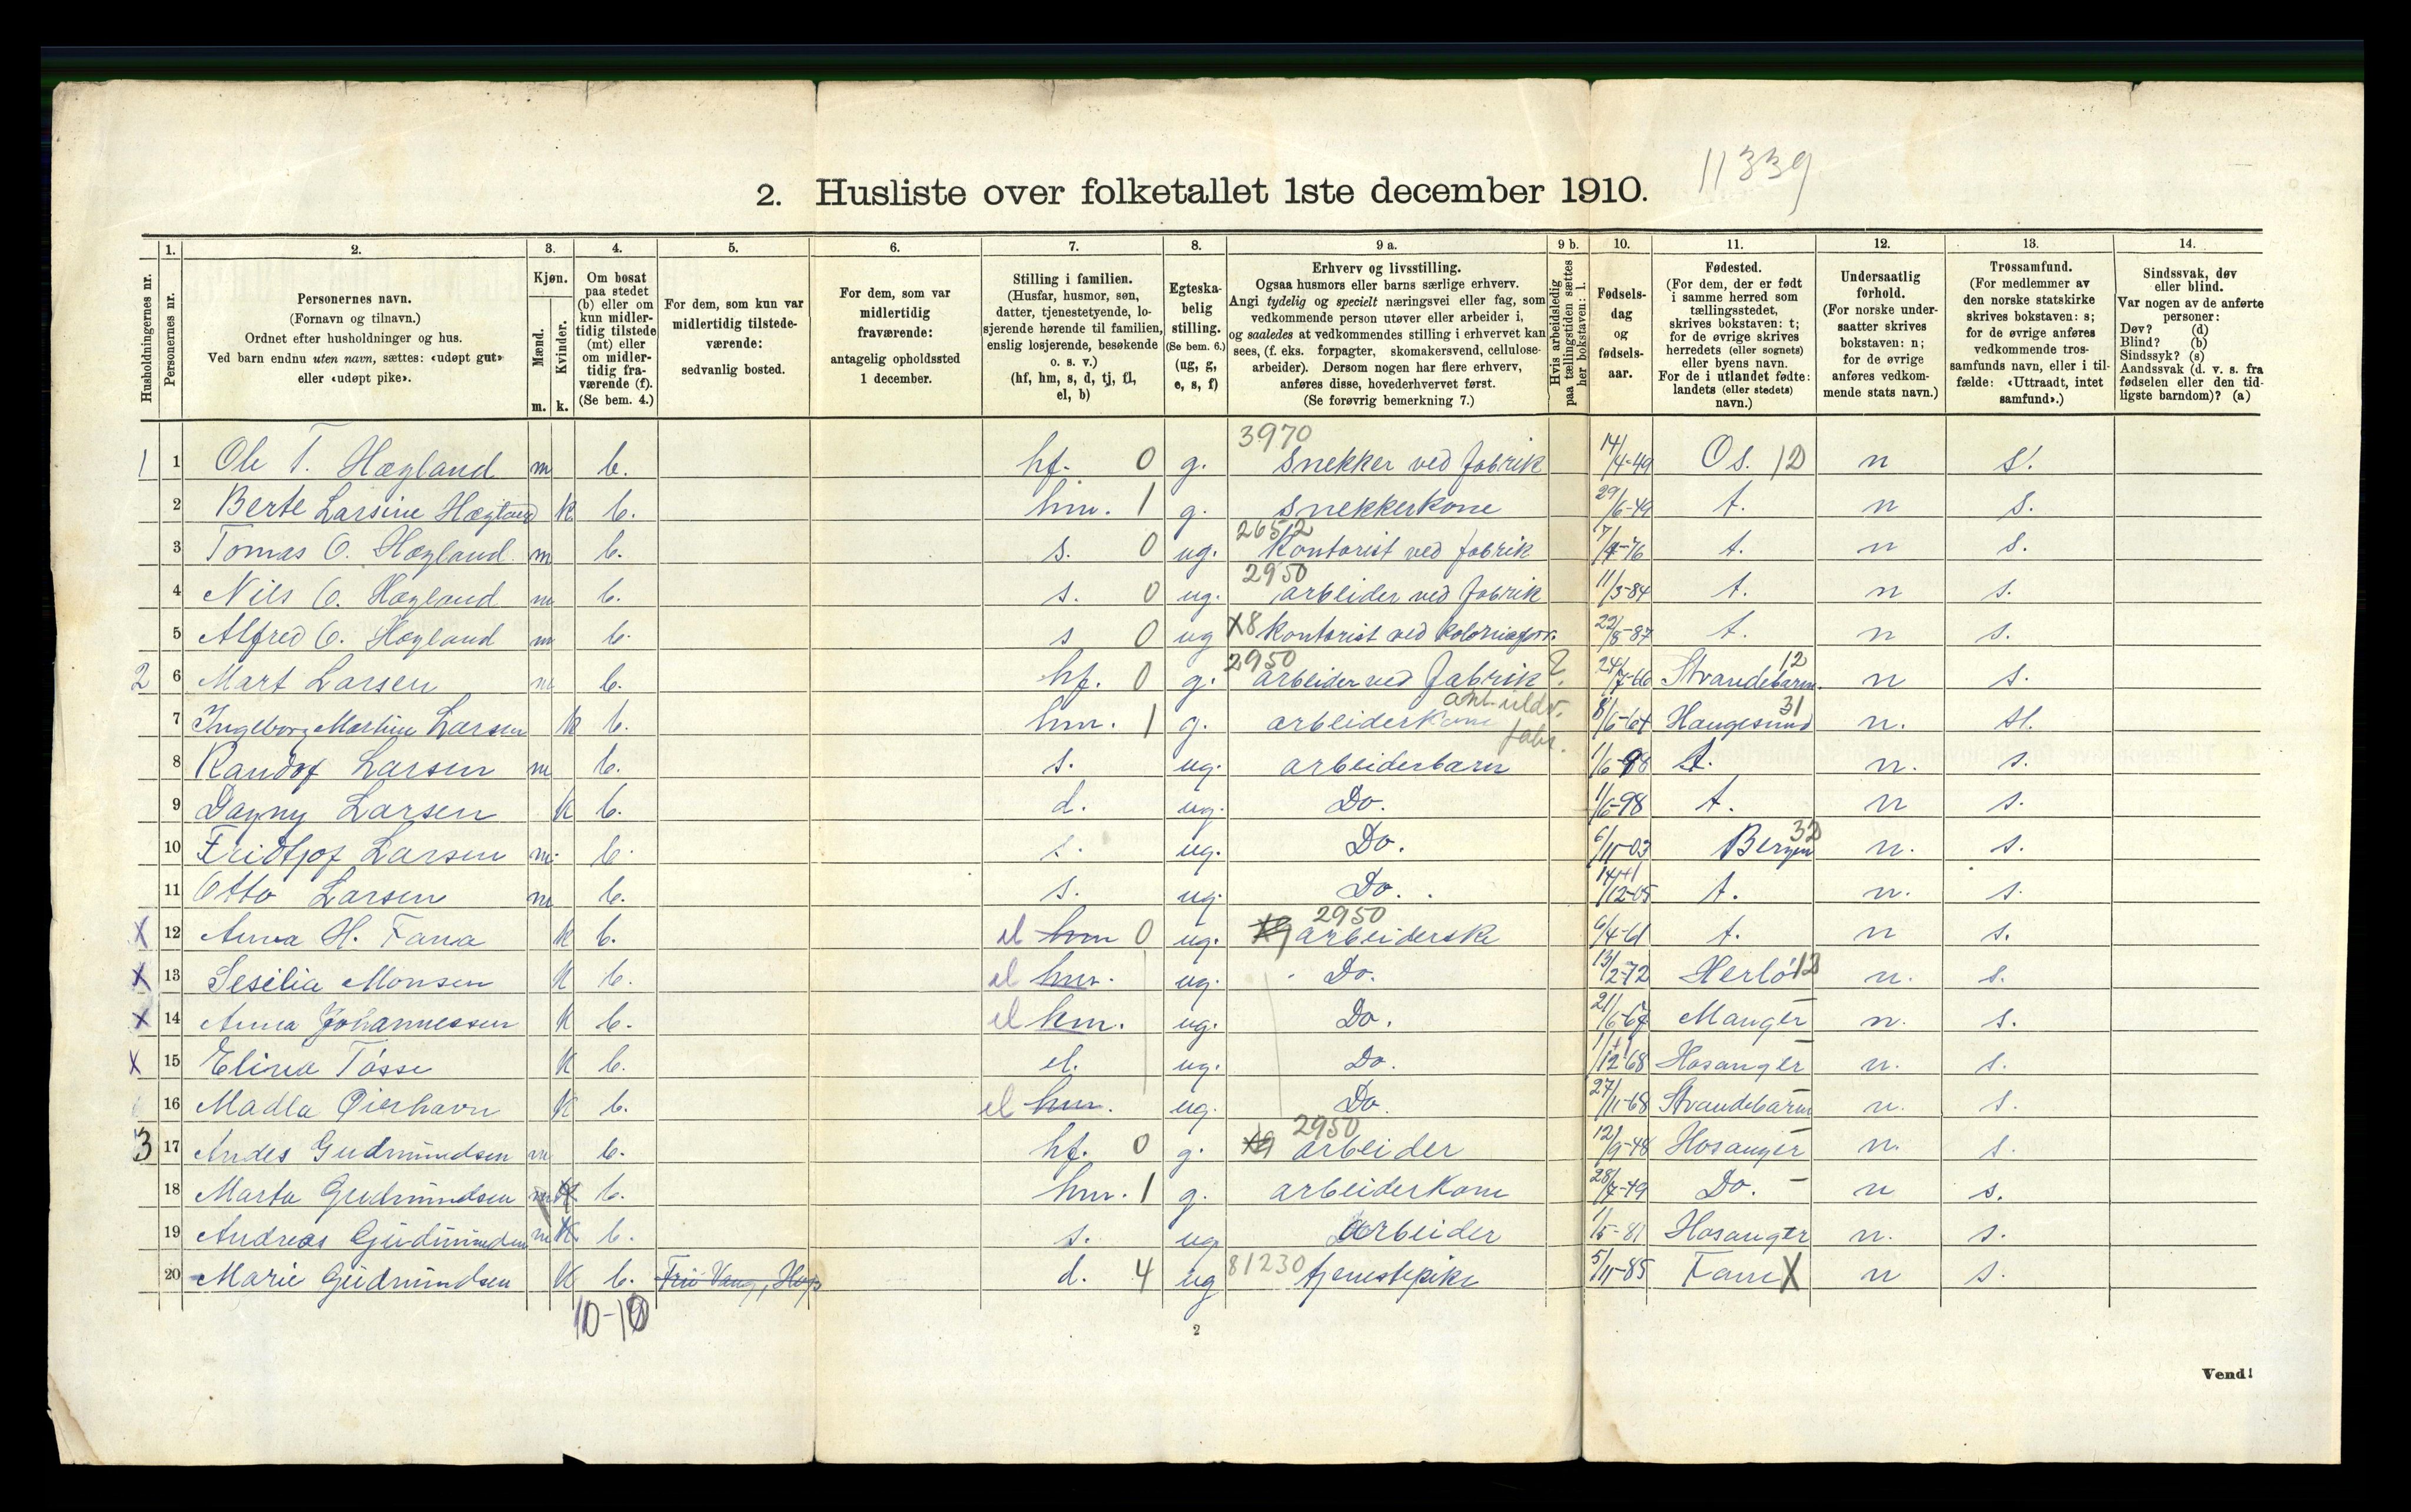 11339
2. Husliste over folketallet 1ste december 1910.
Husholdningernes nr.
1. Personernes nr.
2. Personernes navn.
(Fornavn og tilnavn.)
Ordnet efter husholdninger og hus.
Ved barn endnu uten navn, sættes: «udøpt gut»
eller «udøpt pike».
3. Kjøn.
Mænd. m.
Kvinder. k.
4. Om bosat
paa stedet
(b) eller om
kun midler-
tidig tilstede
(mt) eller
om midler-
tidig fra-
værende (f).
(Se bem. 4.)
5. For dem, som kun var
midlertidig tilstede-
værende:
sedvanlig bosted.
6. For dem, som var
midlertidig
fraværende:
antagelig opholdssted
1 december.
7. Stilling i familien.
(Husfar, husmor, søn,
datter, tjenestetyende, lo-
sjerende hørende til familien,
enslig losjerende, besøkende
o. s. v.)
(hf, hm, s, d, tj, fl,
el, b)
8. Egteska-
belig
stilling.
(Se bem. 6.)
(ug, g,
e, s, f)
9 a. Erhverv og livsstilling.
Ogsaa husmors eller barns særlige erhverv.
Angi tydelig og specielt næringsvei eller fag, som
vedkommende person utøver eller arbeider i,
og saaledes at vedkommendes stilling i erhvervet kan
sees, (f. eks. forpagter, skomakersvend, cellulose-
arbeider). Dersom nogen har flere erhverv,
anføres disse, hovederhvervet først.
(Se forøvrig bemerkning 7.)
9 b. Hvis arbeidsledig
paa tællingstiden sættes
her bokstaven: l.
10. Fødsels-
dag
og
fødsels-
aar.
11. Fødested.
(For dem, der er født
i samme herred som
tællingsstedet,
skrives bokstaven: t;
for de øvrige skrives
herredets (eller sognets)
eller byens navn.
For de i utlandet fødte:
landets (eller stedets)
navn.)
12. Undersaatlig
forhold.
(For norske under-
saatter skrives
bokstaven: n;
for de øvrige
anføres vedkom-
mende stats navn.)
13. Trossamfund.
(For medlemmer av
den norske statskirke
skrives bokstaven: s;
for de øvrige anføres
vedkommende tros-
samfunds navn, eller i til-
fælde: «Uttraadt, intet
samfund».)
14. Sindssvak, døv
eller blind.
Var nogen av de anførte
personer:
Døv? (d)
Blind? (b)
Sindssyk? (s)
Aandssvak (d. v. s. fra
fødselen eller den tid-
ligste barndom)? (a)
3970
1 1 Ole T. Hægland m b. hf. 0 g. Snekker ved fabrik 14/4-49 Os. 12 n s.
2 Berte Larsine Hægland k b. hm. 1 g. snekkerkone 29/6-49 t. n s.
2652
3 Tomas O. Hægland m b. s. 0 ug. Kontorist ved fabrik t. n s.
2950
4 Nils O. Hægland m b. s. 0 ug. arbeider ved fabrik 11/3-84 t. n s.
5 Alfred O. Hægland m b. s 0 ug X8 Kontorist ved t. n s.
2950
2 6 Mart Larsen m b. hf. 0 g. arbeider ved fabrik 24/7-66 Strandebarm 12 n s.
7 Ingeborg Martine Larsen k b. hm. 1 g. arbeiderkone Haugesund 31 n. s.
8 Randof Larsen m b. s. ug. arbeiderbarn 1/6-98 t. n. s.
9 Dagny Larsen k b. d. ug. Do. 1/6-98 t. n s.
10 Fridtjof Larsen m. b. s. ug. Do. 6/11-03 Bergen 32 n. s.
11 Otto Larsen m b. s. ug. Do. 14/12-05 t. n. s
2950
X 12 Anna H. Fana k b. el hm 0 ug. arbeiderske 6/4-61 t. n s.
X 13 Sesilia Monsen k b. el hm. ug. Do. 13/2-72 Herlø 12 n. s.
X 14 Anna Johannessen k b. el hm. ug. Do. 21/6-67 Manger n. s.
X 15 Elina Tøsse k b. el. ug. Do. 1/12-68 Hosanger n. s.
16 Madla Øierhavn k b. el hm. ug. Do. 27/11-68 Strandebarm n. s.
2950
3 17 Andes Gudmundsen m b. hf. 0 g. arbeider 12/9-48 Hosanger n. s.
18 Marta Gudmundsen k b. hm. 1 g. arbeiderkone 28/7-49 Do. n s.
19 Andreas Gudmundsen m b. s. ug arbeider 1/5-81 Hosanger n. s.
20 Marie Gudmundsen k b. d. 4 ug 81230 tjenestepike 5/11-85 Fane X n s.
10-10
2
Vend!